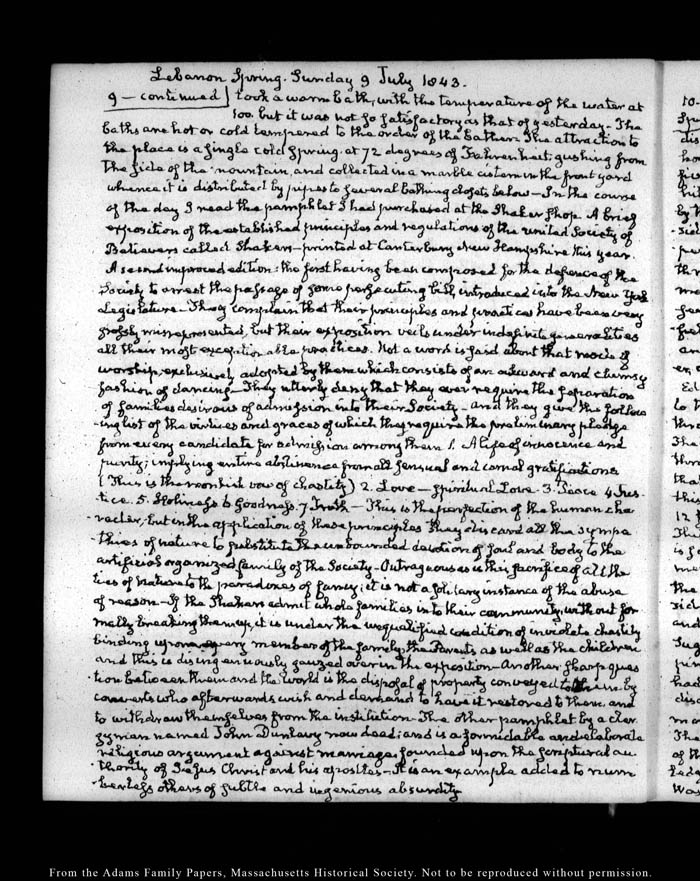 Lebanon Spring. Sunday 9 July 1843.
9 – continued} took a warm bath, with the temperature of the water at
100. but it was not so satisfactory as that of yesterday. The
baths are hot or cold tempered to the order of the bather. The attraction to
the place is a single cold Spring at 72 degrees of Fahrenheit; gushing from
the side of the mountain, and collected in a marble cistern in the front yard
whence it is distributed by pipes to several bathing closets below – In the course
of the day I read the pamphlet I had purchased at the Shaker Shop. A brief
exposition of the established principles and regulations of the United Society of
Believers called Shakers – printed at Canterbury New Hampshire this year.
A second improved edition: the first having been composed for the defence of the
Society to arrest the passage of some persecuting bill, introduced into the New York
Legislature. They complain that their principles and practices have been very
grossly misrepresented, but their exposition veils under indefinite generalities
all their most exceptionable practices. Not a word is said about that mode of
worship, exclusively adopted by them which consists of an awkward and clumsy
fashion of dancing – They utterly deny that they ever require the separation
of families desirous of admission into their Society – and they give the follow
-ing list of the virtues and graces of which they require the preliminary pledge
from every candidate for admission among them 1. A life of innocence and
purity; implying entire abstinence from all sensual and carnal gratifications
(This is the monkish vow of chastity) 2. Love – spiritual Love. 3. Peace 4 Jus-
tice. 5. Holiness 6 Goodness. 7 Truth – This is the perfection of the human cha
-racter, but in the application of these principles they discard all the sympa
-thies of nature to substitute the unbounded devotion of soul and body to the
artificial organized family of the Society – Outrageous as is this sacrifice of all the
ties of Nature to the paradoxes of fancy; it is not a solitary instance of the abuse
of reason – If the Shakers admit whole families into their community, without for
mally breaking them up, it is under the unqualified condition of inviolate chastity
binding upon every member of the family; the Parents as well as the children
and this is disingenuously gauzed over in the exposition – Another sharp ques
tion between them and the world is the disposal of property conveyed to them by
converts who afterwards wish and demand to have it restored to them and
to withdraw themselves from the institution – The other pamphlet by a cler
gyman named John Dunlavy now dead; and is a formidable and elaborate
religious argument against marriage founded upon the scriptural au
-thority of Jesus Christ and his apostles – It is an example added to num
-berless others of subtle and ingenious absurdity
From the Adams Family Papers, Massachusetts Historical Society. Not to be reproduced without permission.